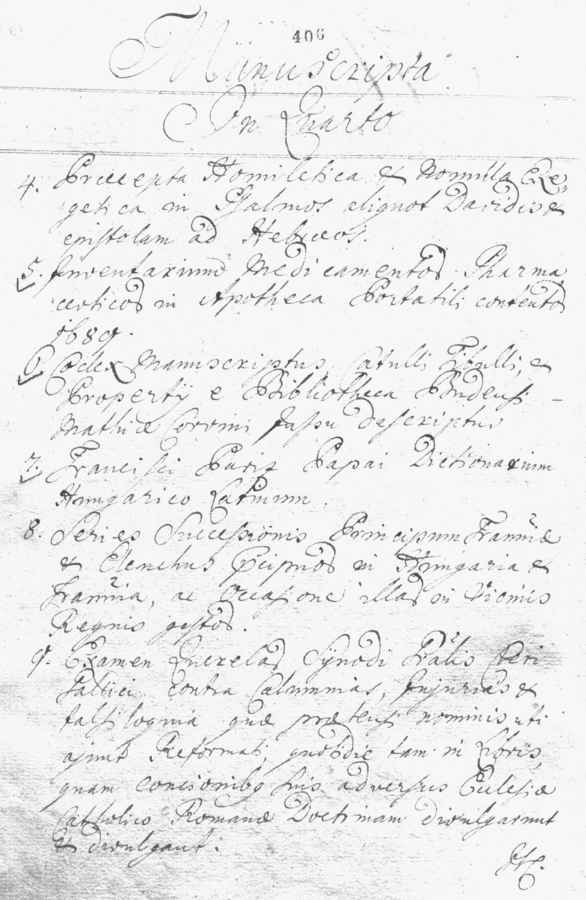 406
Manuscripta
In Quarto
4. Precepta Homiletica & Nonnulla Exe„
getica in Psalmos aliquot Davidis &
epistolam ad Hebræos.
5. Inventarium Medicamentor̃ Pharma
ceoticor̃ in Apotheca Portatili contentor̃
1689.
6. Codex Manuscriptus, Catulli Tibulli, &
Propertÿ e Bibliotheca Budensi –
Mathiæ Corvini Jussu descriptus
7. Francisci Pariz Papai Dictionarium
Hungarico Latinum.
8. Series Successionis Principum Tranniæ
& Elenchus in Hungaria &
Trannia, ac Occasione illar̃ in Vicinis
Regnis gestor̃.
9. Examen Querelar̃ Synodi Cleri
Gallici contra Calumnias, Injurias &
falsiloquia quæ prætensi nominis uti
ajunt Reformati, quotidie tam in Libris,
quam concionibq suis adversus Eclesiæ
Catholico Romanæ Doctrinam divulgarunt
& divulgant.